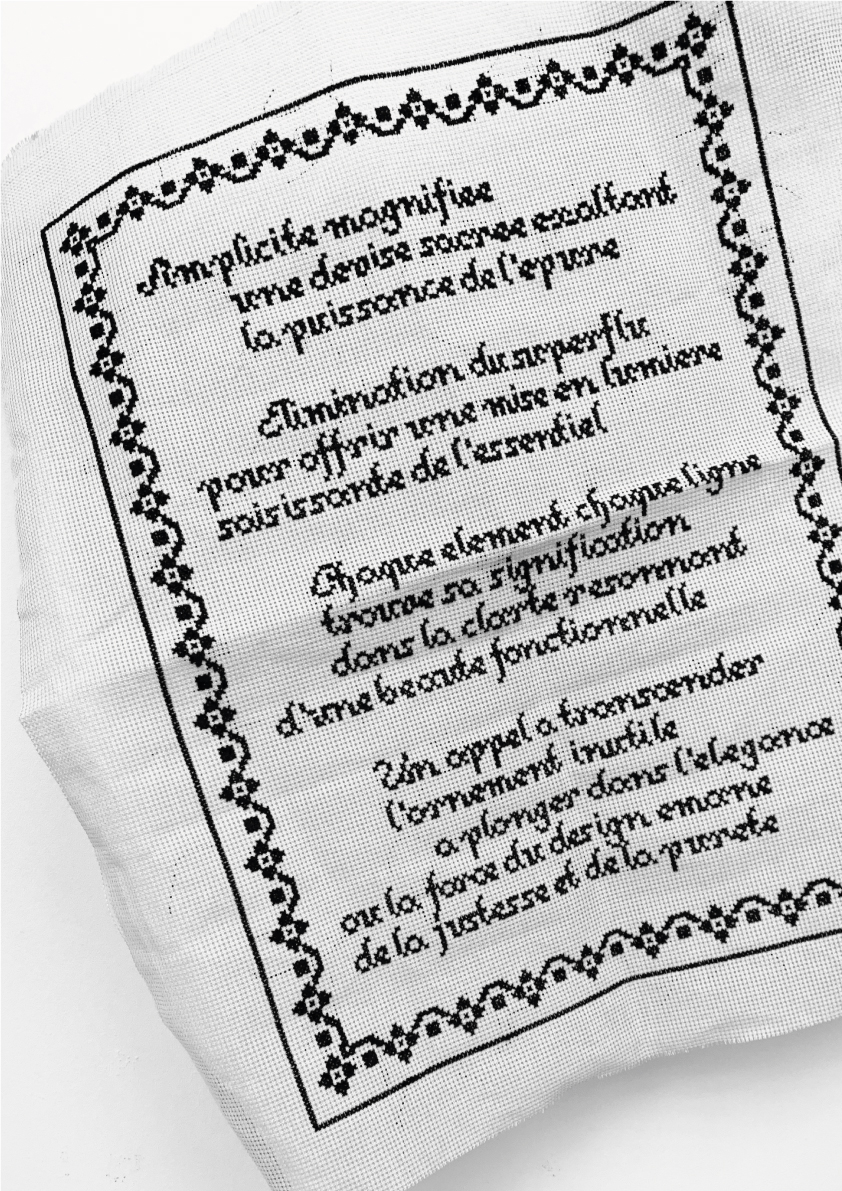 Simplicite magnifiee
une devise sacree exaltant
la puissance de l'epure
Elimination du superflu
pour offrir une mise en lumiere
saisissante de l'essentiel
Chaque element chaque ligne
trouve sa signification
dans la clarte resonnant
d'une beaute fonctionnelle
Un appel a transcender
l'ornement inutile
a plonger dans l'elegance
ou la force du design emane
de la justesse et de la purete